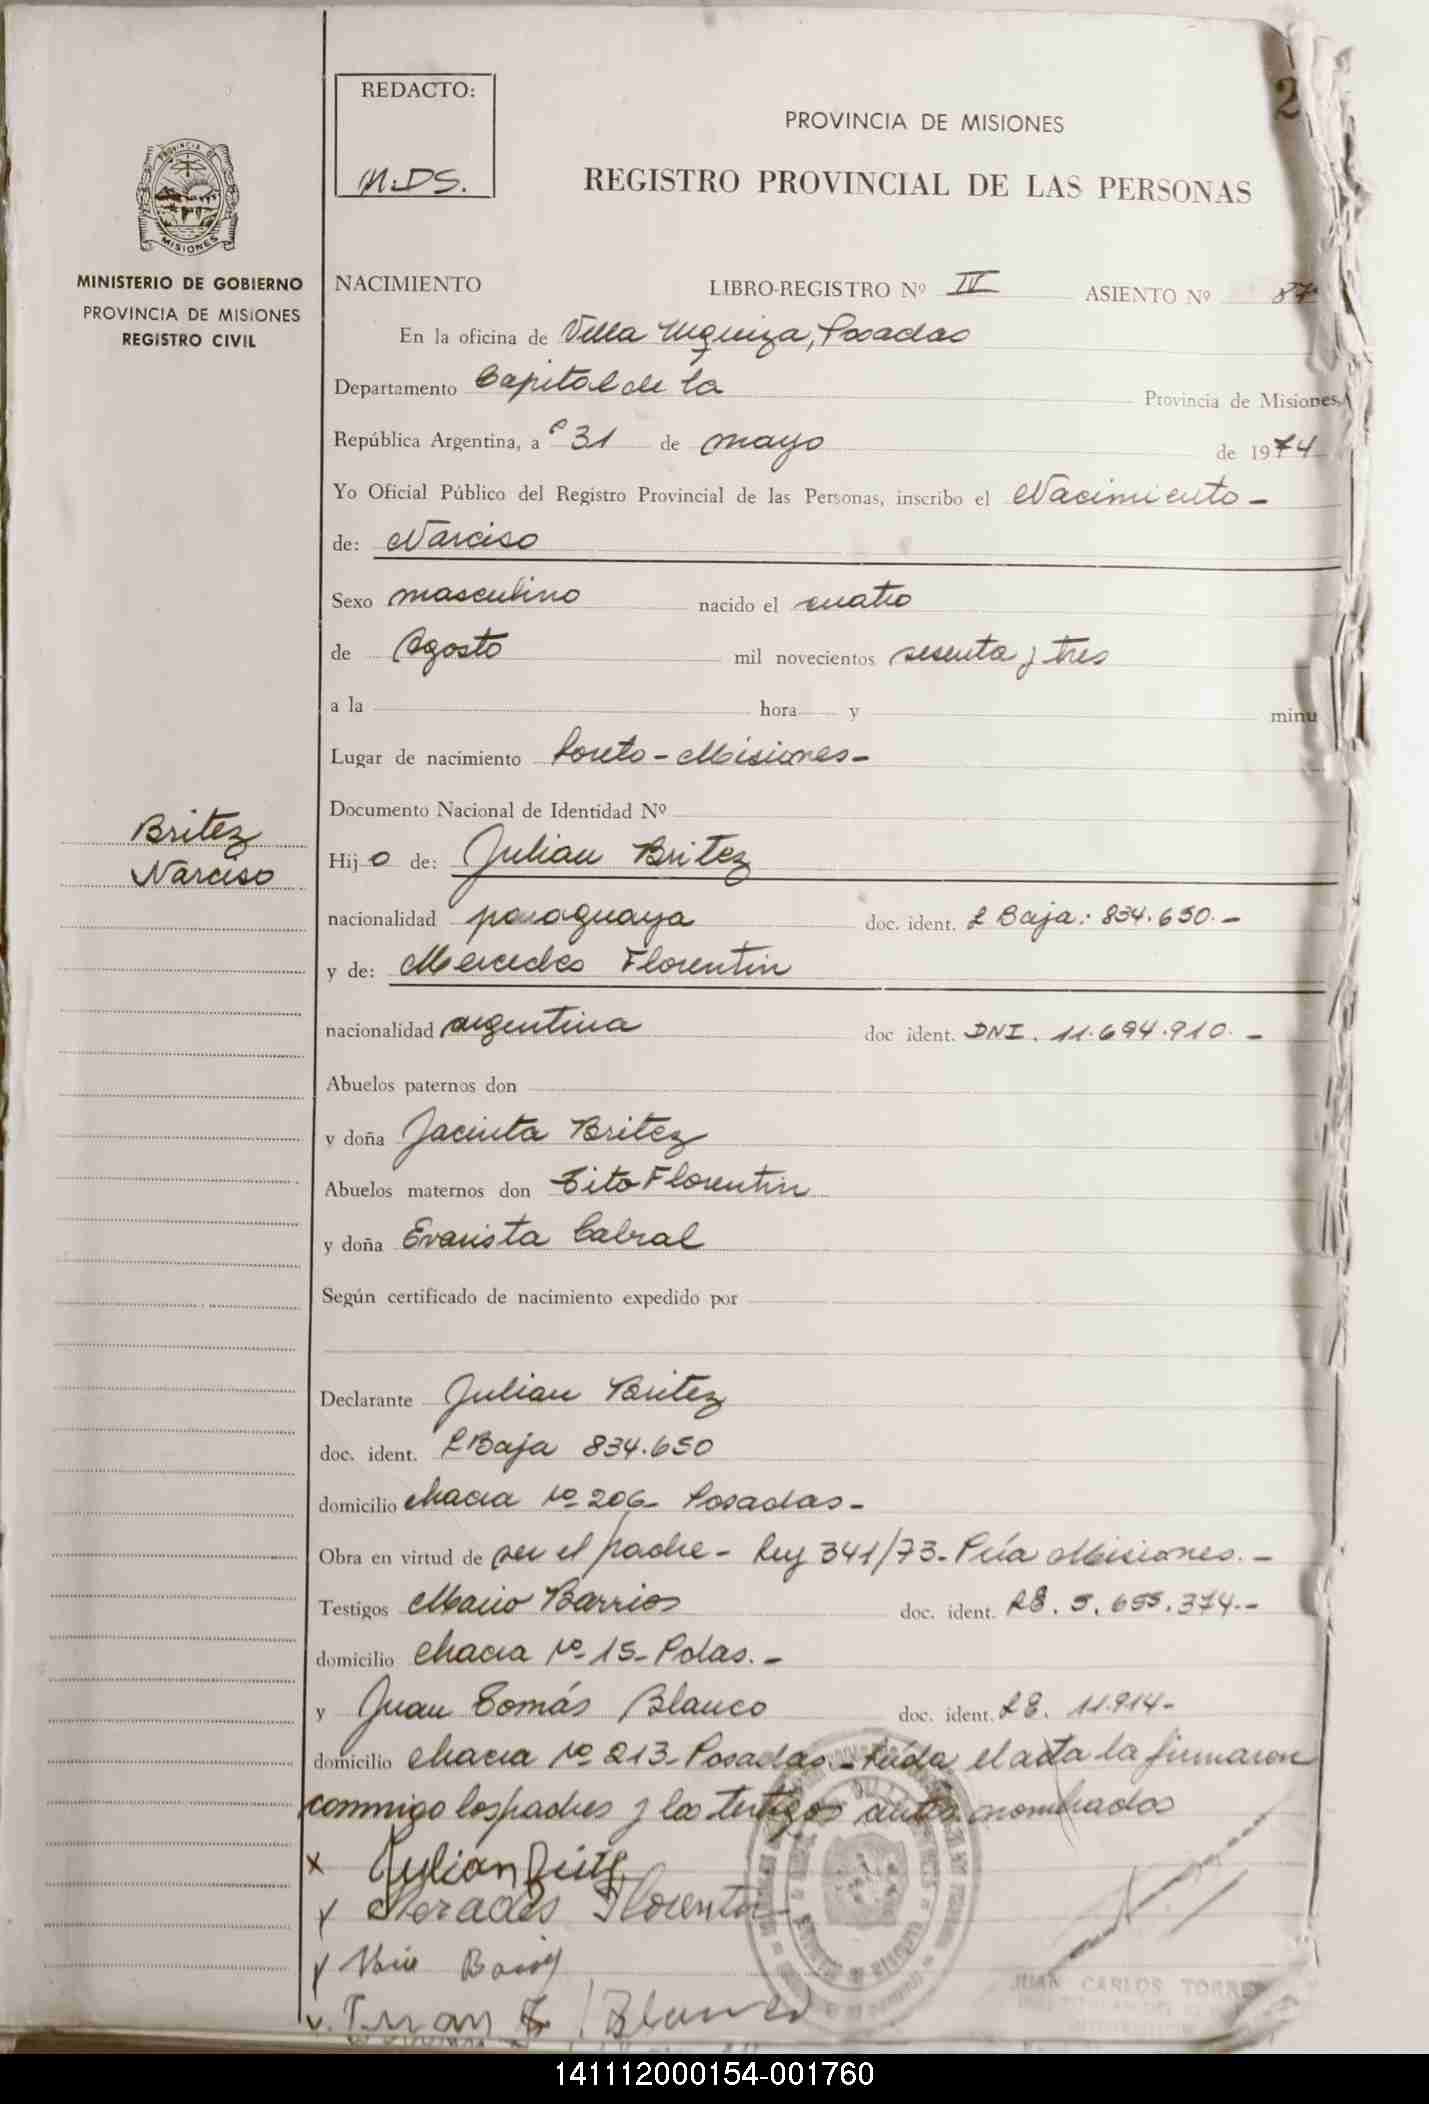 REDACTO:
M.DS.
2
PROVINCIA DE MISIONES
REGISTRO PROVINCIAL DE LAS PERSONAS
PROVINCIA DE
MISIONES
MINISTERIO DE GOBIERNO
PROVINCIA DE MISIONES
REGISTRO CIVIL
NACIMIENTO LIBRO-REGISTRO Nº IV ASIENTO Nº 87
En la oficina de Villa Urquiza, Posadas
Departamento Capital de la Provincia de Misiones,
República Argentina, a 31 de mayo de 1974
Yo Oficial Público del Registro Provincial de las Personas, inscribo el Nacimiento -
de: Narciso
Sexo masculino nacido el cuatro
de Agosto mil novecientos sesenta y tres
a la hora y minu
Lugar de nacimiento Loreto - Misiones -
Documento Nacional de Identidad Nº
Britez
Narciso
Hijo de: Julian Britez
nacionalidad paraguaya doc. ident. L Baja: 834.650. -
y de: Mercedes Florentin
nacionalidad argentina doc ident. DNI. 11.694.910. -
Abuelos paternos don
y doña Jacinta Britez
Abuelos maternos don Tito Florentin
y doña Evarista Cabral
Según certificado de nacimiento expedido por
Declarante Julian Britez
doc. ident. L Baja 834.650
domicilio chacra Nº 206 - Posadas -
Obra en virtud de ser el padre - Ley 341/73 - Pcia Misiones. -
Testigos Mario Barrios doc. ident. LE. 5.655.374. -
domicilio chacra Nº 15 - Pdas. -
y Juan Tomás Blanco doc. ident. LE. 11.914 -
domicilio chacra Nº 213 - Posadas. - Leída el acta la firmaron
conmigo los padres y los testigos antes nombrados
x Julian Britez
x Florentin
x
x Juan T Blanco
JUAN CARLOS TORRES
141112000154-001760